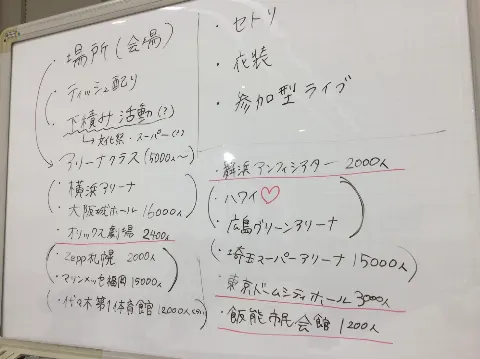 ・場所(会場)
・ティッシュ配り
・下積み活動(?)
↳文化祭・スーパー(?)
アリーナクラス(5000人〜)
・横浜アリーナ
・大阪城ホール 16000人
・オリックス劇場 2400人
・Zepp札幌 2000人
・マリンメッセ福岡 15000人
・代々木第1体育館 12000人
・セトリ
・衣装
・参加型ライブ
・舞浜アンフィシアター 2000人
・ハワイ♡
・広島グリーンアリーナ
・埼玉スーパーアリーナ 15000人
・東京ドームシティホール 3000人
・飯能市民会館 1200人